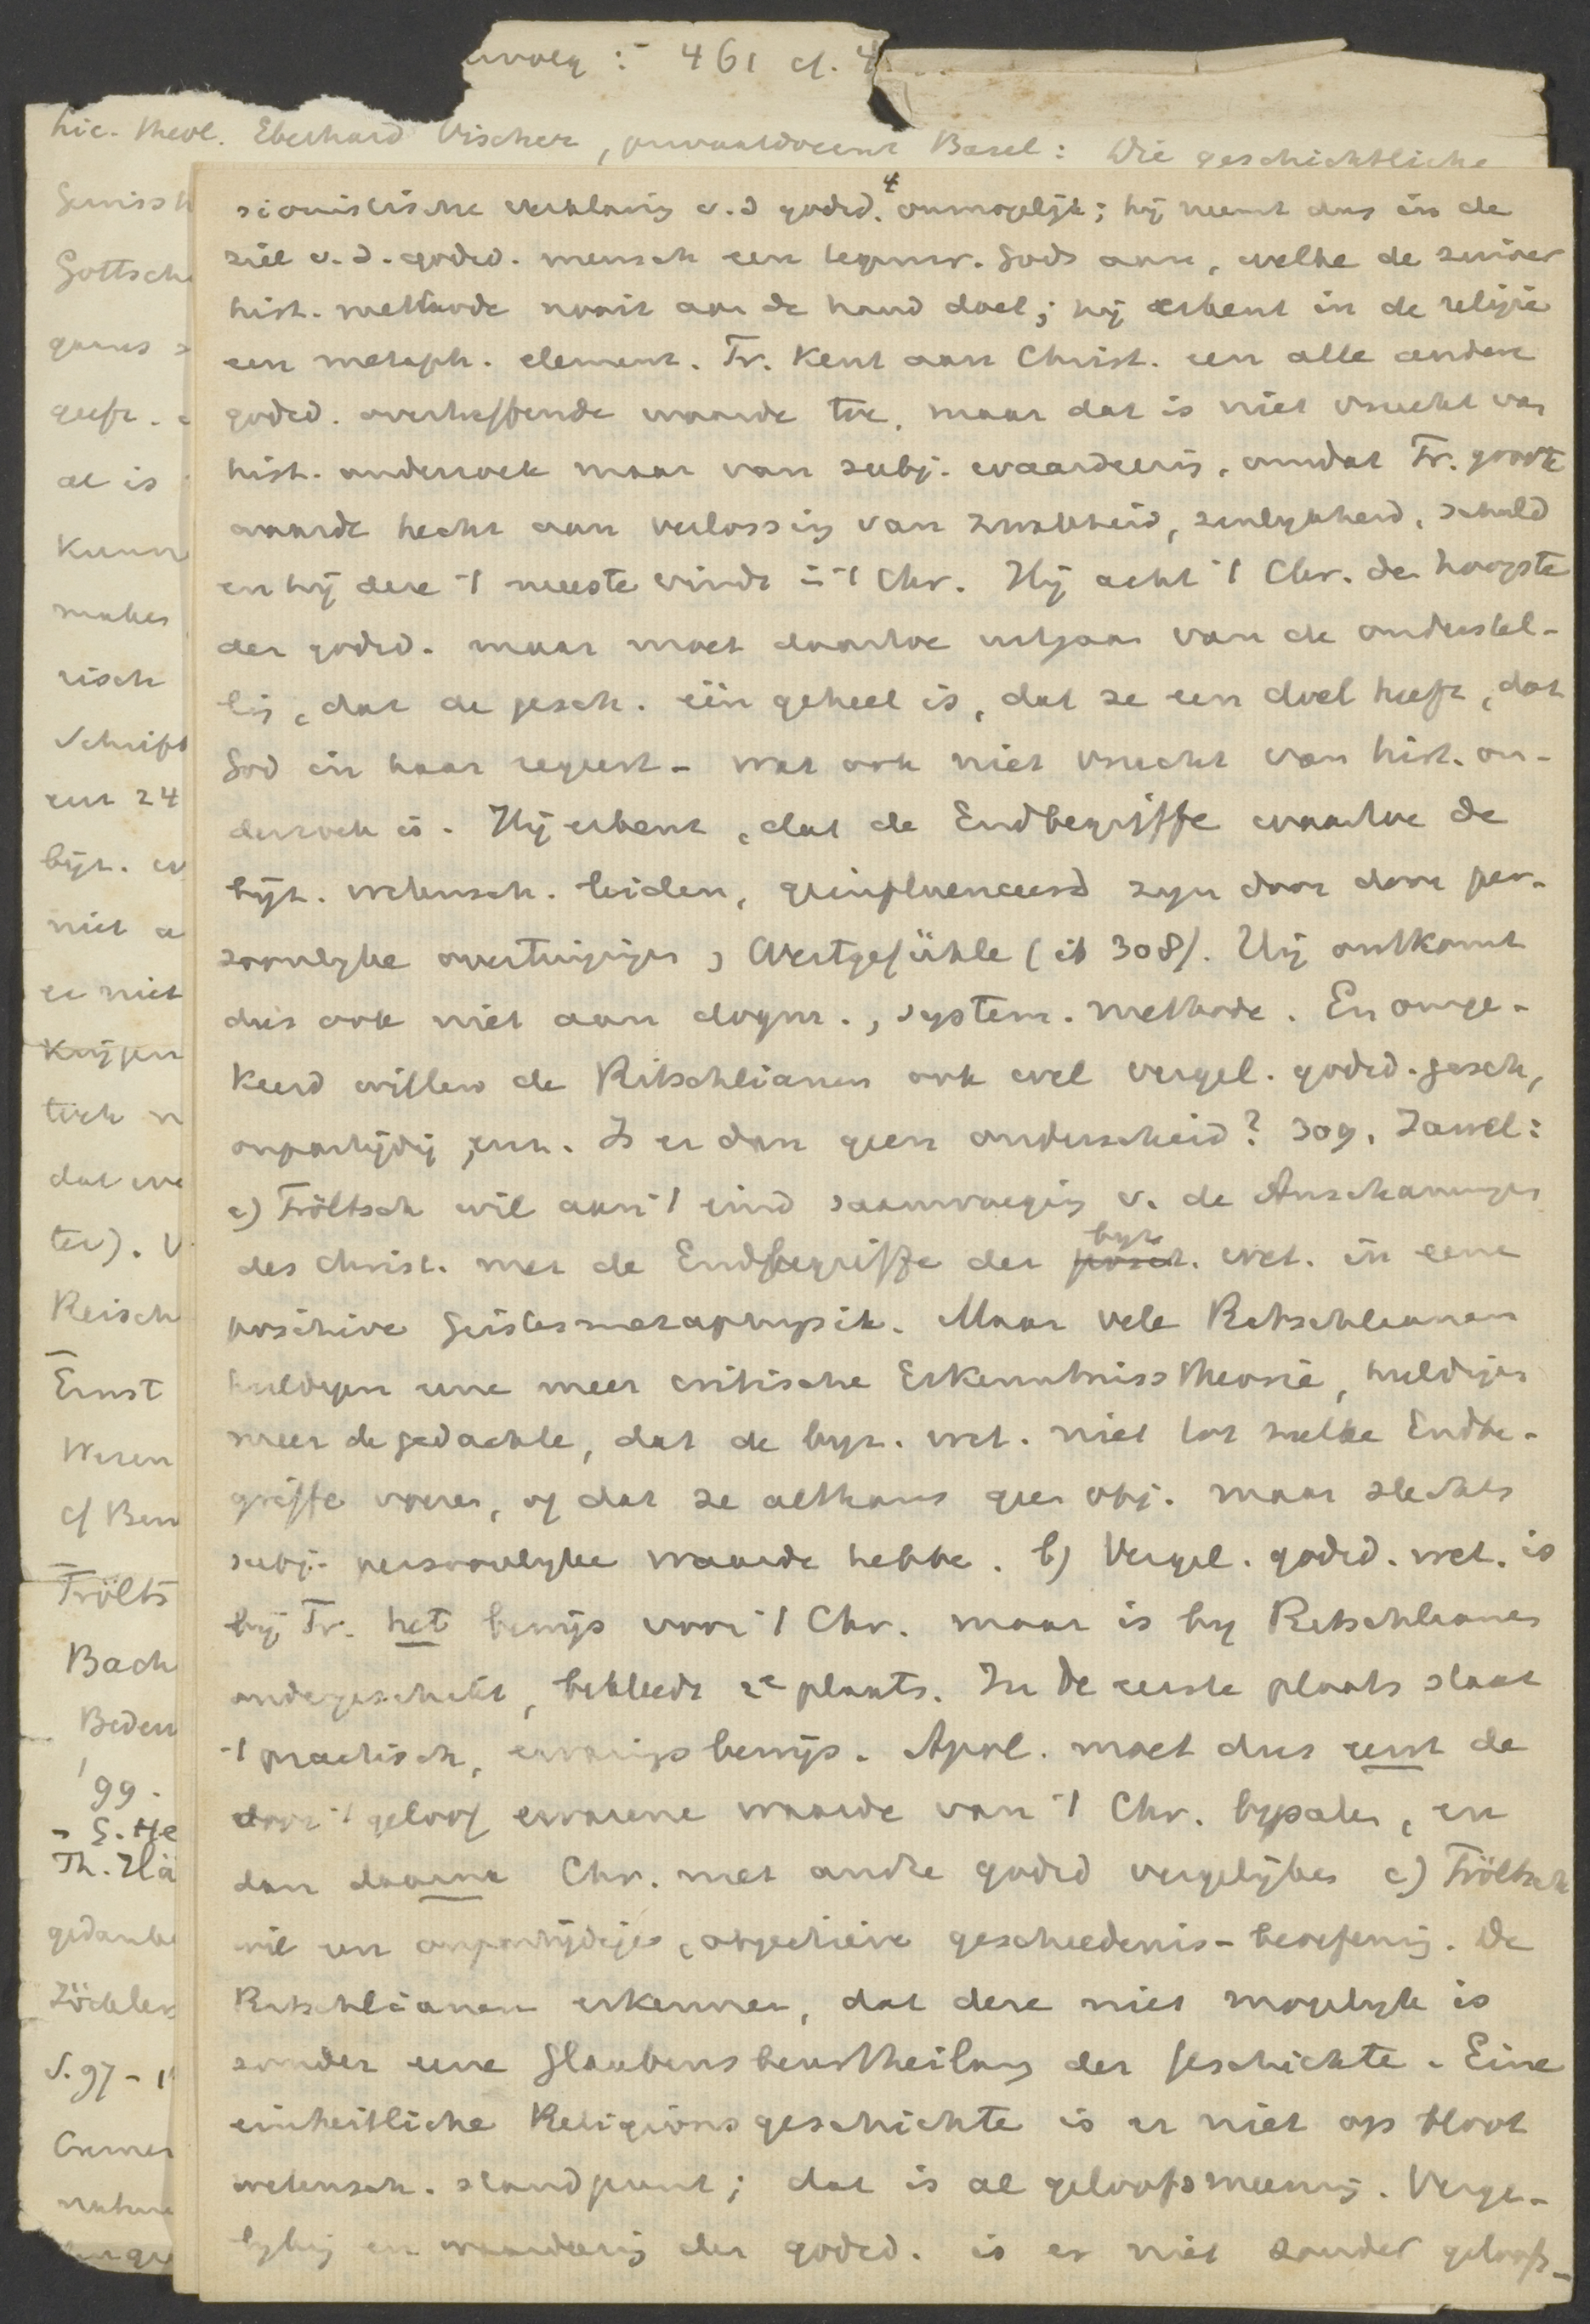 461 cf. 4
Lic. theol. Eberhard Vischer, privaatdocent Basel: Die geschichtliche
sionistische verklaring v. d godsd. 4 onmogelijk; hij neemt dus in de
ziel v. d. godsd. mensch een tegenw. Gods aan, welke de zuiver
hist. methode nooit aan de hand doet; hij erkent in de religie
een metaph. element. Tr. kent aan Christ. een alle andere
godsd. overtreffende waarde toe, maar dat is niet vrucht van
hist. onderzoek maar van subj. waardeering, omdat Tr. groote
waarde hecht aan verlossing van zwakheid, zinlykheid, schuld
en hij deze 't meeste vindt in 't Chr. Hij acht 't Chr. de hoogste
der godsd. maar moet daartoe uitgaan van de onderstel-
ling, dat de gesch. één geheel is, dat ze een doel heeft, dat
God in haar regeert - wat ook niet vrucht van hist. on-
derzoek is. Hij erkent, dat de Endbegriffe waartoe de
byz. wetensch. leiden, geinfluenceerd zyn door door per-
soonlyke overtuigingen, Wertgefühle (ib 308). Hij ontkomt
dus ook niet aan dogm., system. methode. En omge-
keerd willen de Ritschlianen ook wel vergel. godsd. gesch,
onpartijdig enz. Is er dan geen onderscheid? 309. Jawel:
a) Tröltsch wil aan 't eind saamvoeging v. de Anschauungen
des Christ. met de Endbegriffe der byz. wet. in eene
positive Geistesmetaphysik. Maar vele Ritschlianen
huldigen eene meer critische Erkenntnisstheorie, huldigen
meer de gedachte, dat de byz. wet. niet tot zulke Endbe-
griffe voeren, of dat ze althans geen obj. maar slechts
subj. persoonlyke waarde hebben. b) Vergel. godsd. wet. is
bij Tr. het bewijs voor 't Chr. maar is by Ritschlianen
ondergeschikt, bekleedt 2e plaats. In de eerste plaats staat
't practisch, ervaringsbewijs. Apol. moet dus eerst de
door 't geloof ervarene waarde van 't Chr. bepalen, en
dan daarna Chr. met andre godsd vergelijken c) Tröltsch
wil een onpartijdige, objectieve geschiedenis-beoefening. De
Ritschlianen erkennen, dat deze niet mogelyk is
zonder eene Glaubensbeurtheilung der Geschichte. Eine
einheitliche Religionsgeschichte is er niet op bloot
wetensch. standpunt; dat is al geloofsmeening. Verge-
lyking en waardeering der godsd. is er niet zonder geloofs-
Gottsche
geeft.
al is
maken
risch
Schrift
een 24
byz.
niet a
er niet
Krijgen
tisch
Reisch
Ernst
cf Ben
Trölts
Bach
Beden
'99.
Th. Hä
Zöckler
S. 97 -
Cremer